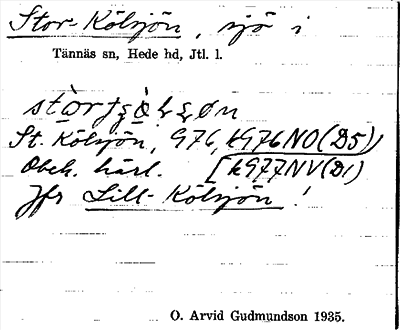 Stor-Kölsjön, sjö i
Tännäs sn, Hede hd, Jtl. l.
St. Kölsjön, 976, k976NO(D5)
Obek. härl. [k977NV(D1)
Jfr Lill-Kölsjön!
O. Arvid Gudmundson 1935.